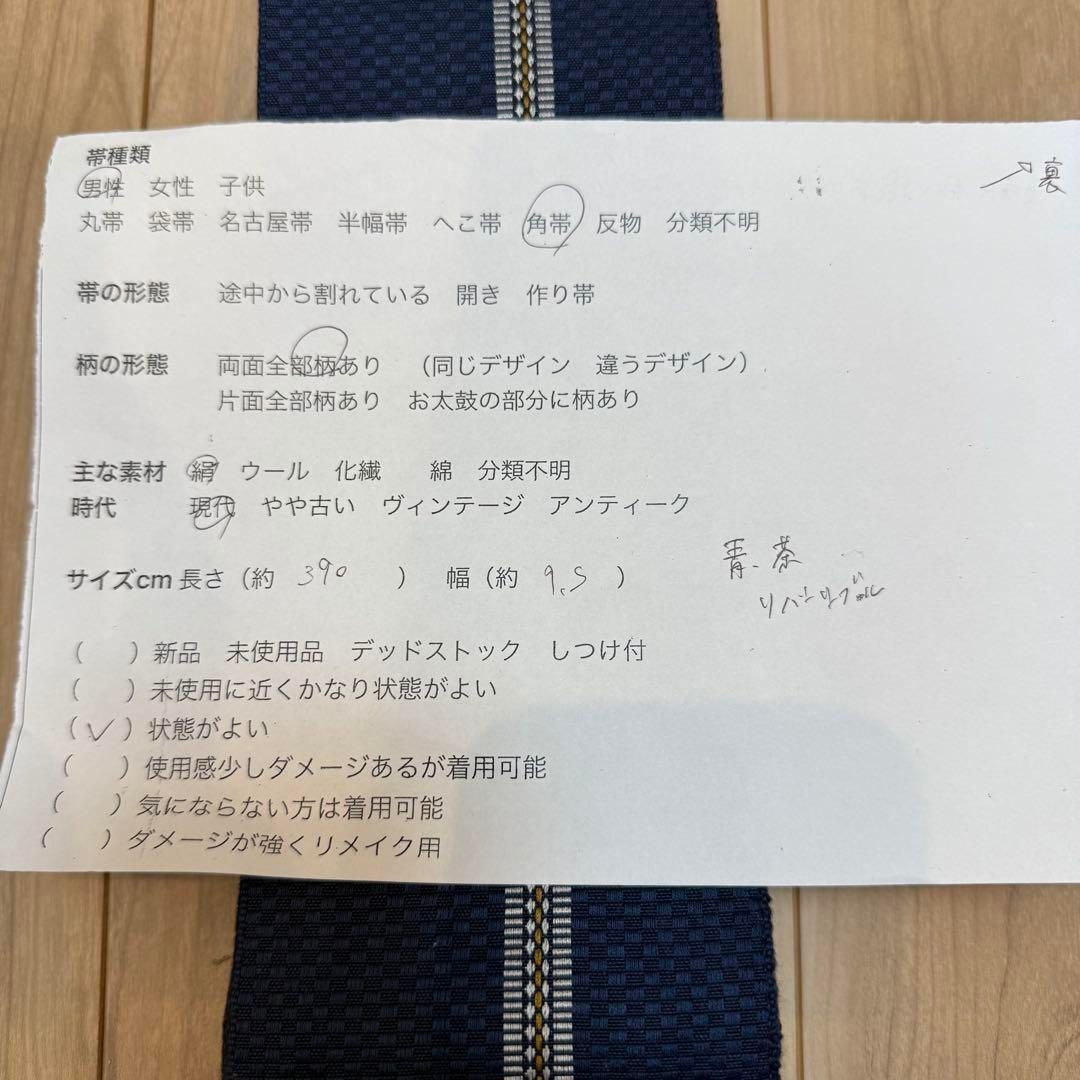 帯種類
男性 女性 子供
丸帯 袋帯 名古屋帯 半幅帯 へこ帯 角帯 反物 分類不明
↗裏
帯の形態 途中から割れている 開き 作り帯
柄の形態 両面全部柄あり （同じデザイン 違うデザイン）
片面全部柄あり お太鼓の部分に柄あり
主な素材 絹 ウール 化繊 綿 分類不明
時代 現代 やや古い ヴィンテージ アンティーク
サイズcm 長さ（約 390 ） 幅（約 9.5 ）
青、茶
リバーシブル
（ ）新品 未使用品 デッドストック しつけ付
（ ）未使用に近くかなり状態がよい
（✓）状態がよい
（ ）使用感少しダメージあるが着用可能
（ ）気にならない方は着用可能
（ ）ダメージが強くリメイク用